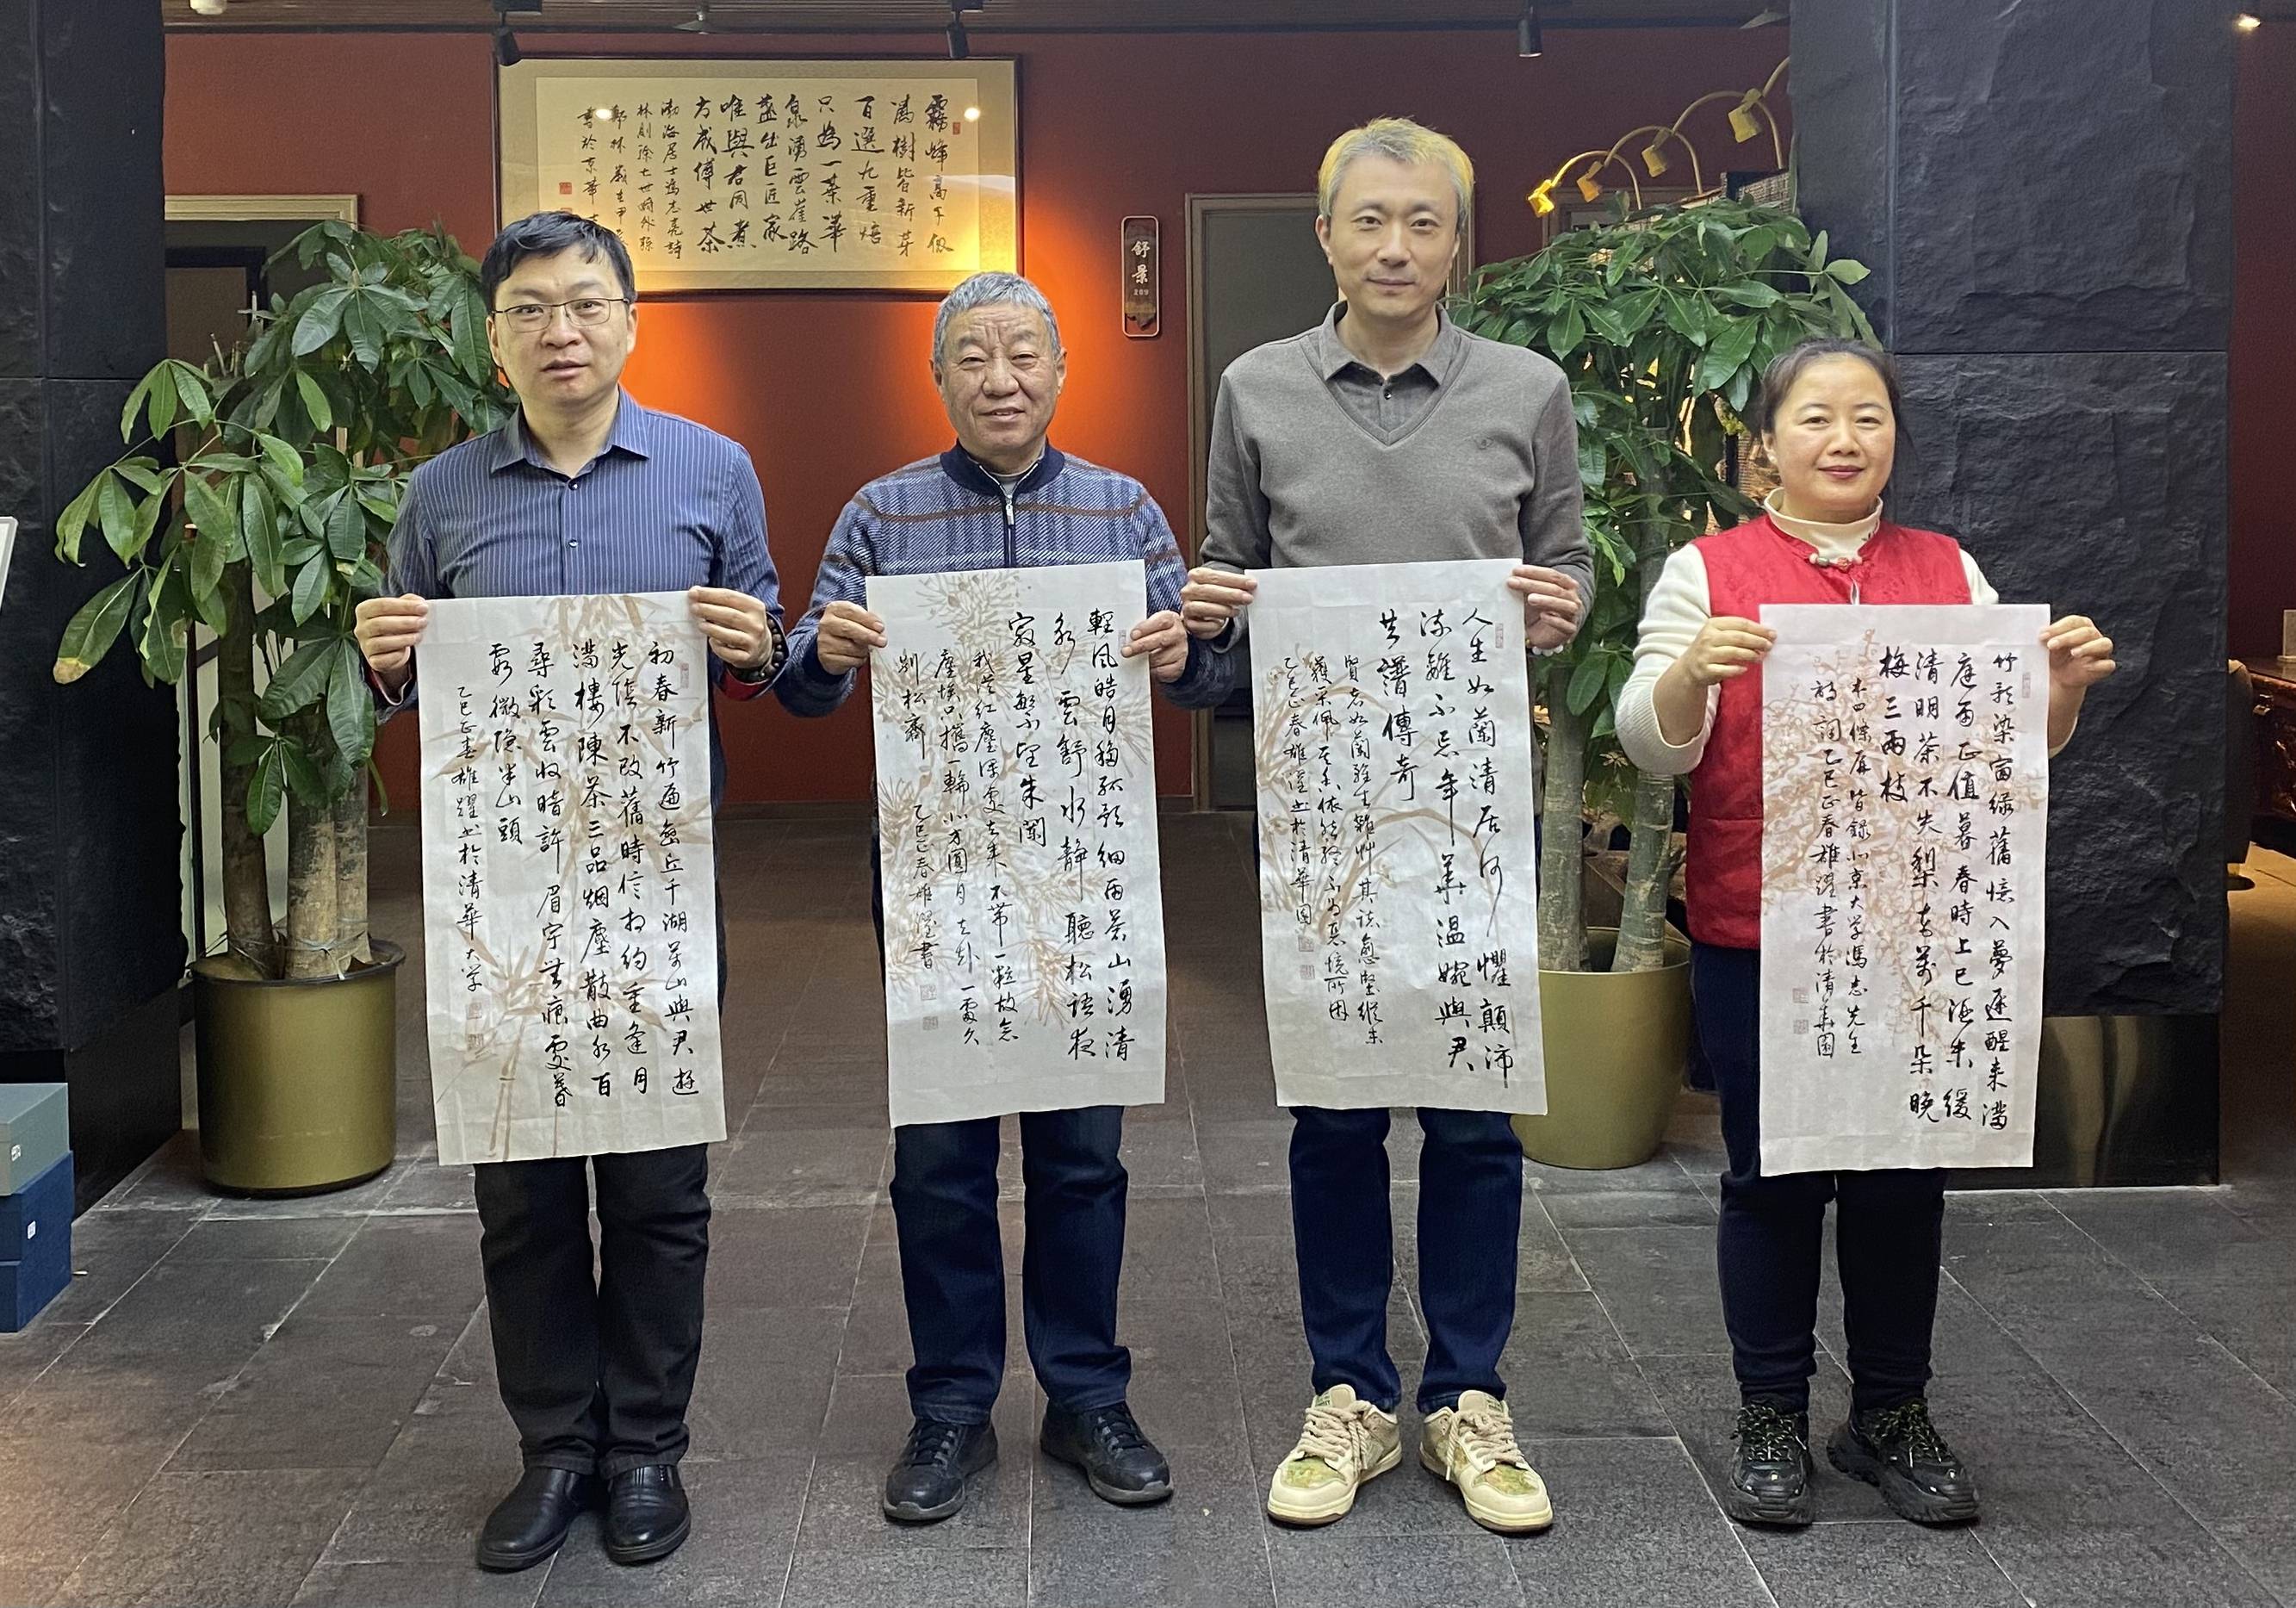 霧峰高千仞
滿樹皆新芽
百選九重焙
只為一葉華
泉湧雲崖路
盞出巨匠家
唯與君同煮
方成傳世茶
渤海居士馮志亮詩
林則徐七世嫡外孫
書於京華
舒景
209
初春新竹遍壑丘千湖萬山與君遊
光陰不改舊時信相約重逢月
滿樓陳茶三品烟塵散曲水百
尋彩雲收暗許眉宇無痕處暮
雲微隐半山頭
乙巳正春雄躍書於清華大学
輕風皓月移孤影細雨蒼山湧清
雲舒水靜聽松語夜
寂星繁不望朱闌
我從紅塵深處去來不帶一粒故念
塵埃只攜一輪北方圓月去赴一處久
別松齋
乙巳正春雄躍書
人生如蘭清居何懼顛沛
流離不忘年華温婉與君
共譜傳奇
賢者如蘭雖生雜艸其誌愈堅縱未
獲采佩其香依然終不為惡境所困
乙巳正春雄躍書於清華園
竹影染窗綠舊憶入夢遲醒來滿
庭雨正值暮春時上巳酒未緩
清明茶不失梨花萬千朵晚
梅三兩枝
本四條屏皆錄北京大学馮志先生
詩詞乙巳正春雄躍書於清華園